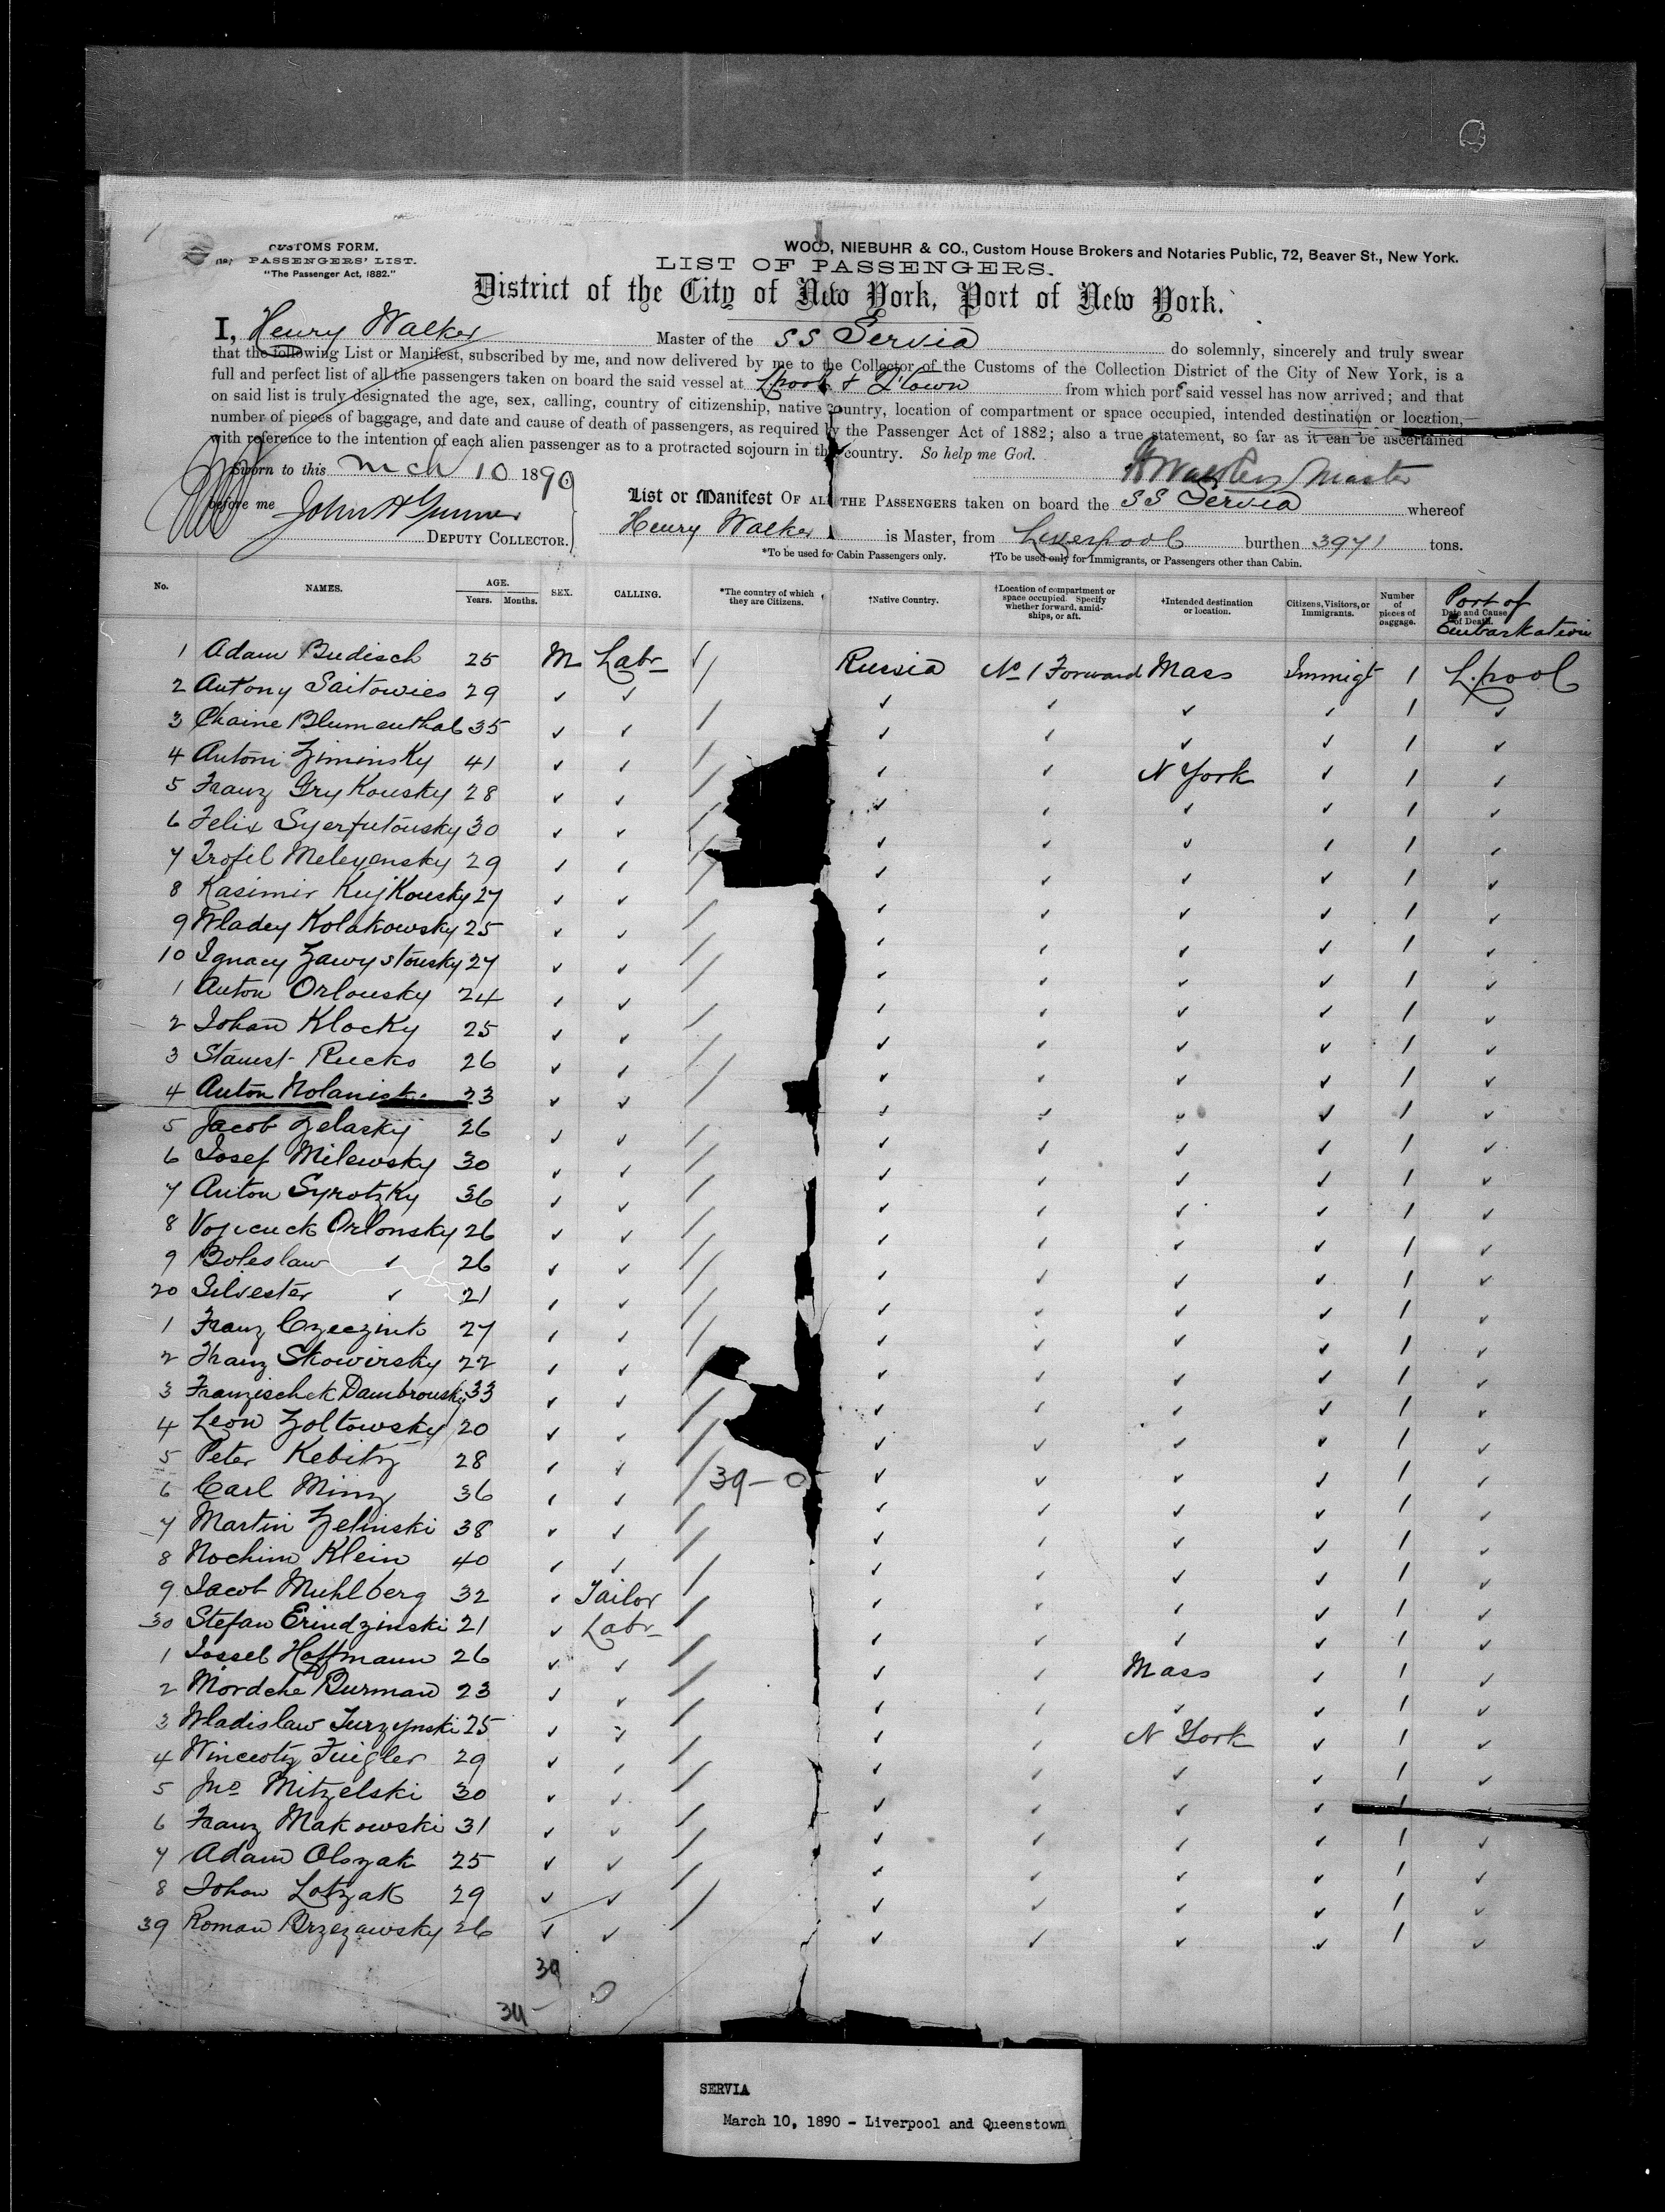 CUSTOMS FORM.
PASSENGERS' LIST.
"The Passenger Act, 1882."
WOOD, NIEBUHR & CO., Custom House Brokers and Notaries Public, 72, Beaver St., New York.
LIST OF PASSENGERS.
District of the City of New York, Port of New York.
I, Henry Walker Master of the SS Servia do solemnly, sincerely and truly swear
that the following List or Manifest, subscribed by me, and now delivered by me to the Collector of the Customs of the Collection District of the City of New York, is a
full and perfect list of all the passengers taken on board the said vessel at L'pool & Q'town from which port said vessel has now arrived; and that
on said list is truly designated the age, sex, calling, country of citizenship, native country, location of compartment or space occupied, intended destination or location,
number of pieces of baggage, and date and cause of death of passengers, as required by the Passenger Act of 1882; also a true statement, so far as it can be ascertained
with reference to the intention of each alien passenger as to a protracted sojourn in this country. So help me God.
Sworn to this Mch 10 1890
H Walker Master
before me John A
DEPUTY COLLECTOR.
List or Manifest OF ALL THE PASSENGERS taken on board the SS Servia whereof
Henry Walker is Master, from Liverpool burthen 3971 tons.
*To be used for Cabin Passengers only. †To be used only for Immigrants, or Passengers other than Cabin.
No. NAMES. AGE. Years. Months. SEX. CALLING. *The country of which they are Citizens. †Native Country. †Location of compartment or space occupied. Specify whether forward, amidships, or aft. ‡Intended destination or location. Citizens, Visitors, or Immigrants. Number of pieces of baggage. Date and Cause of Death. Port of Embarkation
1 Adam Budisch 25 M Labr / Russia No 1 Forward Mass Immigt 1 L.pool
2 Antony Saitowies 29 ✓ ✓ / ✓ ✓ ✓ ✓ 1 ✓
3 Chaine Blumenthal 35 ✓ ✓ / ✓ ✓ ✓ ✓ 1 ✓
4 Antoni Ziminsky 41 ✓ ✓ / ✓ ✓ N York ✓ 1 ✓
5 Franz Gry Kousky 28 ✓ ✓ / ✓ ✓ ✓ ✓ 1 ✓
6 Felix Syerfutousky 30 ✓ ✓ / ✓ ✓ ✓ ✓ 1 ✓
7 Trofil Meleyensky 29 ✓ ✓ / ✓ ✓ ✓ ✓ 1 ✓
8 Kasimir KujKousky 27 ✓ ✓ / ✓ ✓ ✓ ✓ 1 ✓
9 Wladey Kolakowsky 25 ✓ ✓ / ✓ ✓ ✓ ✓ 1 ✓
10 Ignacy Zawystousky 27 ✓ ✓ / ✓ ✓ ✓ ✓ 1 ✓
1 Anton Orlousky 24 ✓ ✓ / ✓ ✓ ✓ ✓ 1 ✓
2 Johan Klocky 25 ✓ ✓ / ✓ ✓ ✓ ✓ 1 ✓
3 Stanist Rucko 26 ✓ ✓ / ✓ ✓ ✓ ✓ 1 ✓
4 Anton 23 ✓ ✓ / ✓ ✓ ✓ ✓ 1 ✓
5 Jacob Zelasky 26 ✓ ✓ / ✓ ✓ ✓ ✓ 1 ✓
6 Josef Milewsky 30 ✓ ✓ / ✓ ✓ ✓ ✓ 1 ✓
7 Anton Syrotzky 36 ✓ ✓ / ✓ ✓ ✓ ✓ 1 ✓
8 Vojicuck Orlonsky 26 ✓ ✓ / ✓ ✓ ✓ ✓ 1 ✓
9 Boleslaw ✓ 26 ✓ ✓ / ✓ ✓ ✓ ✓ 1 ✓
20 Silvester ✓ 21 ✓ ✓ / ✓ ✓ ✓ ✓ 1 ✓
1 Franz Czeczinto 27 ✓ ✓ / ✓ ✓ ✓ ✓ 1 ✓
2 Franz Skowirsky 22 ✓ ✓ / ✓ ✓ ✓ ✓ 1 ✓
3 Franzischek Dambrousky 33 ✓ ✓ / ✓ ✓ ✓ ✓ 1 ✓
4 Leon Zoltowsky 20 ✓ ✓ / ✓ ✓ ✓ ✓ 1 ✓
5 Peter Kebitz 28 ✓ ✓ / 39-0 ✓ ✓ ✓ ✓ 1 ✓
6 Carl Minz 36 ✓ ✓ / ✓ ✓ ✓ ✓ 1 ✓
7 Martin Zelinski 38 ✓ ✓ / ✓ ✓ ✓ ✓ 1 ✓
8 Nochim Klein 40 ✓ ✓ / ✓ ✓ ✓ ✓ 1 ✓
9 Jacob Muhlberg 32 ✓ Tailor / ✓ ✓ ✓ ✓ 1 ✓
30 Stefan Erindzinski 21 ✓ Labr / ✓ ✓ ✓ ✓ 1 ✓
1 Jossel Hoffmann 26 ✓ ✓ / ✓ ✓ Mass ✓ 1 ✓
2 Mordche Burman 23 ✓ ✓ / ✓ ✓ ✓ ✓ 1 ✓
3 Wladislaw Turzynski 25 ✓ ✓ / ✓ ✓ N York ✓ 1 ✓
4 Wincenty Fuigler 29 ✓ ✓ / ✓ ✓ ✓ ✓ 1 ✓
5 Jno Mitzelski 30 ✓ ✓ / ✓ ✓ ✓ ✓ 1 ✓
6 Franz Makowski 31 ✓ ✓ / ✓ ✓ ✓ ✓ 1 ✓
7 Adam Olszak 25 ✓ ✓ / ✓ ✓ ✓ ✓ 1 ✓
8 Johan Lotzak 29 ✓ ✓ / ✓ ✓ ✓ ✓ 1 ✓
39 Roman Brzezawsky 26 ✓ ✓ / ✓ ✓ ✓ ✓ 1 ✓
39
0
SERVIA
March 10, 1890 - Liverpool and Queenstown